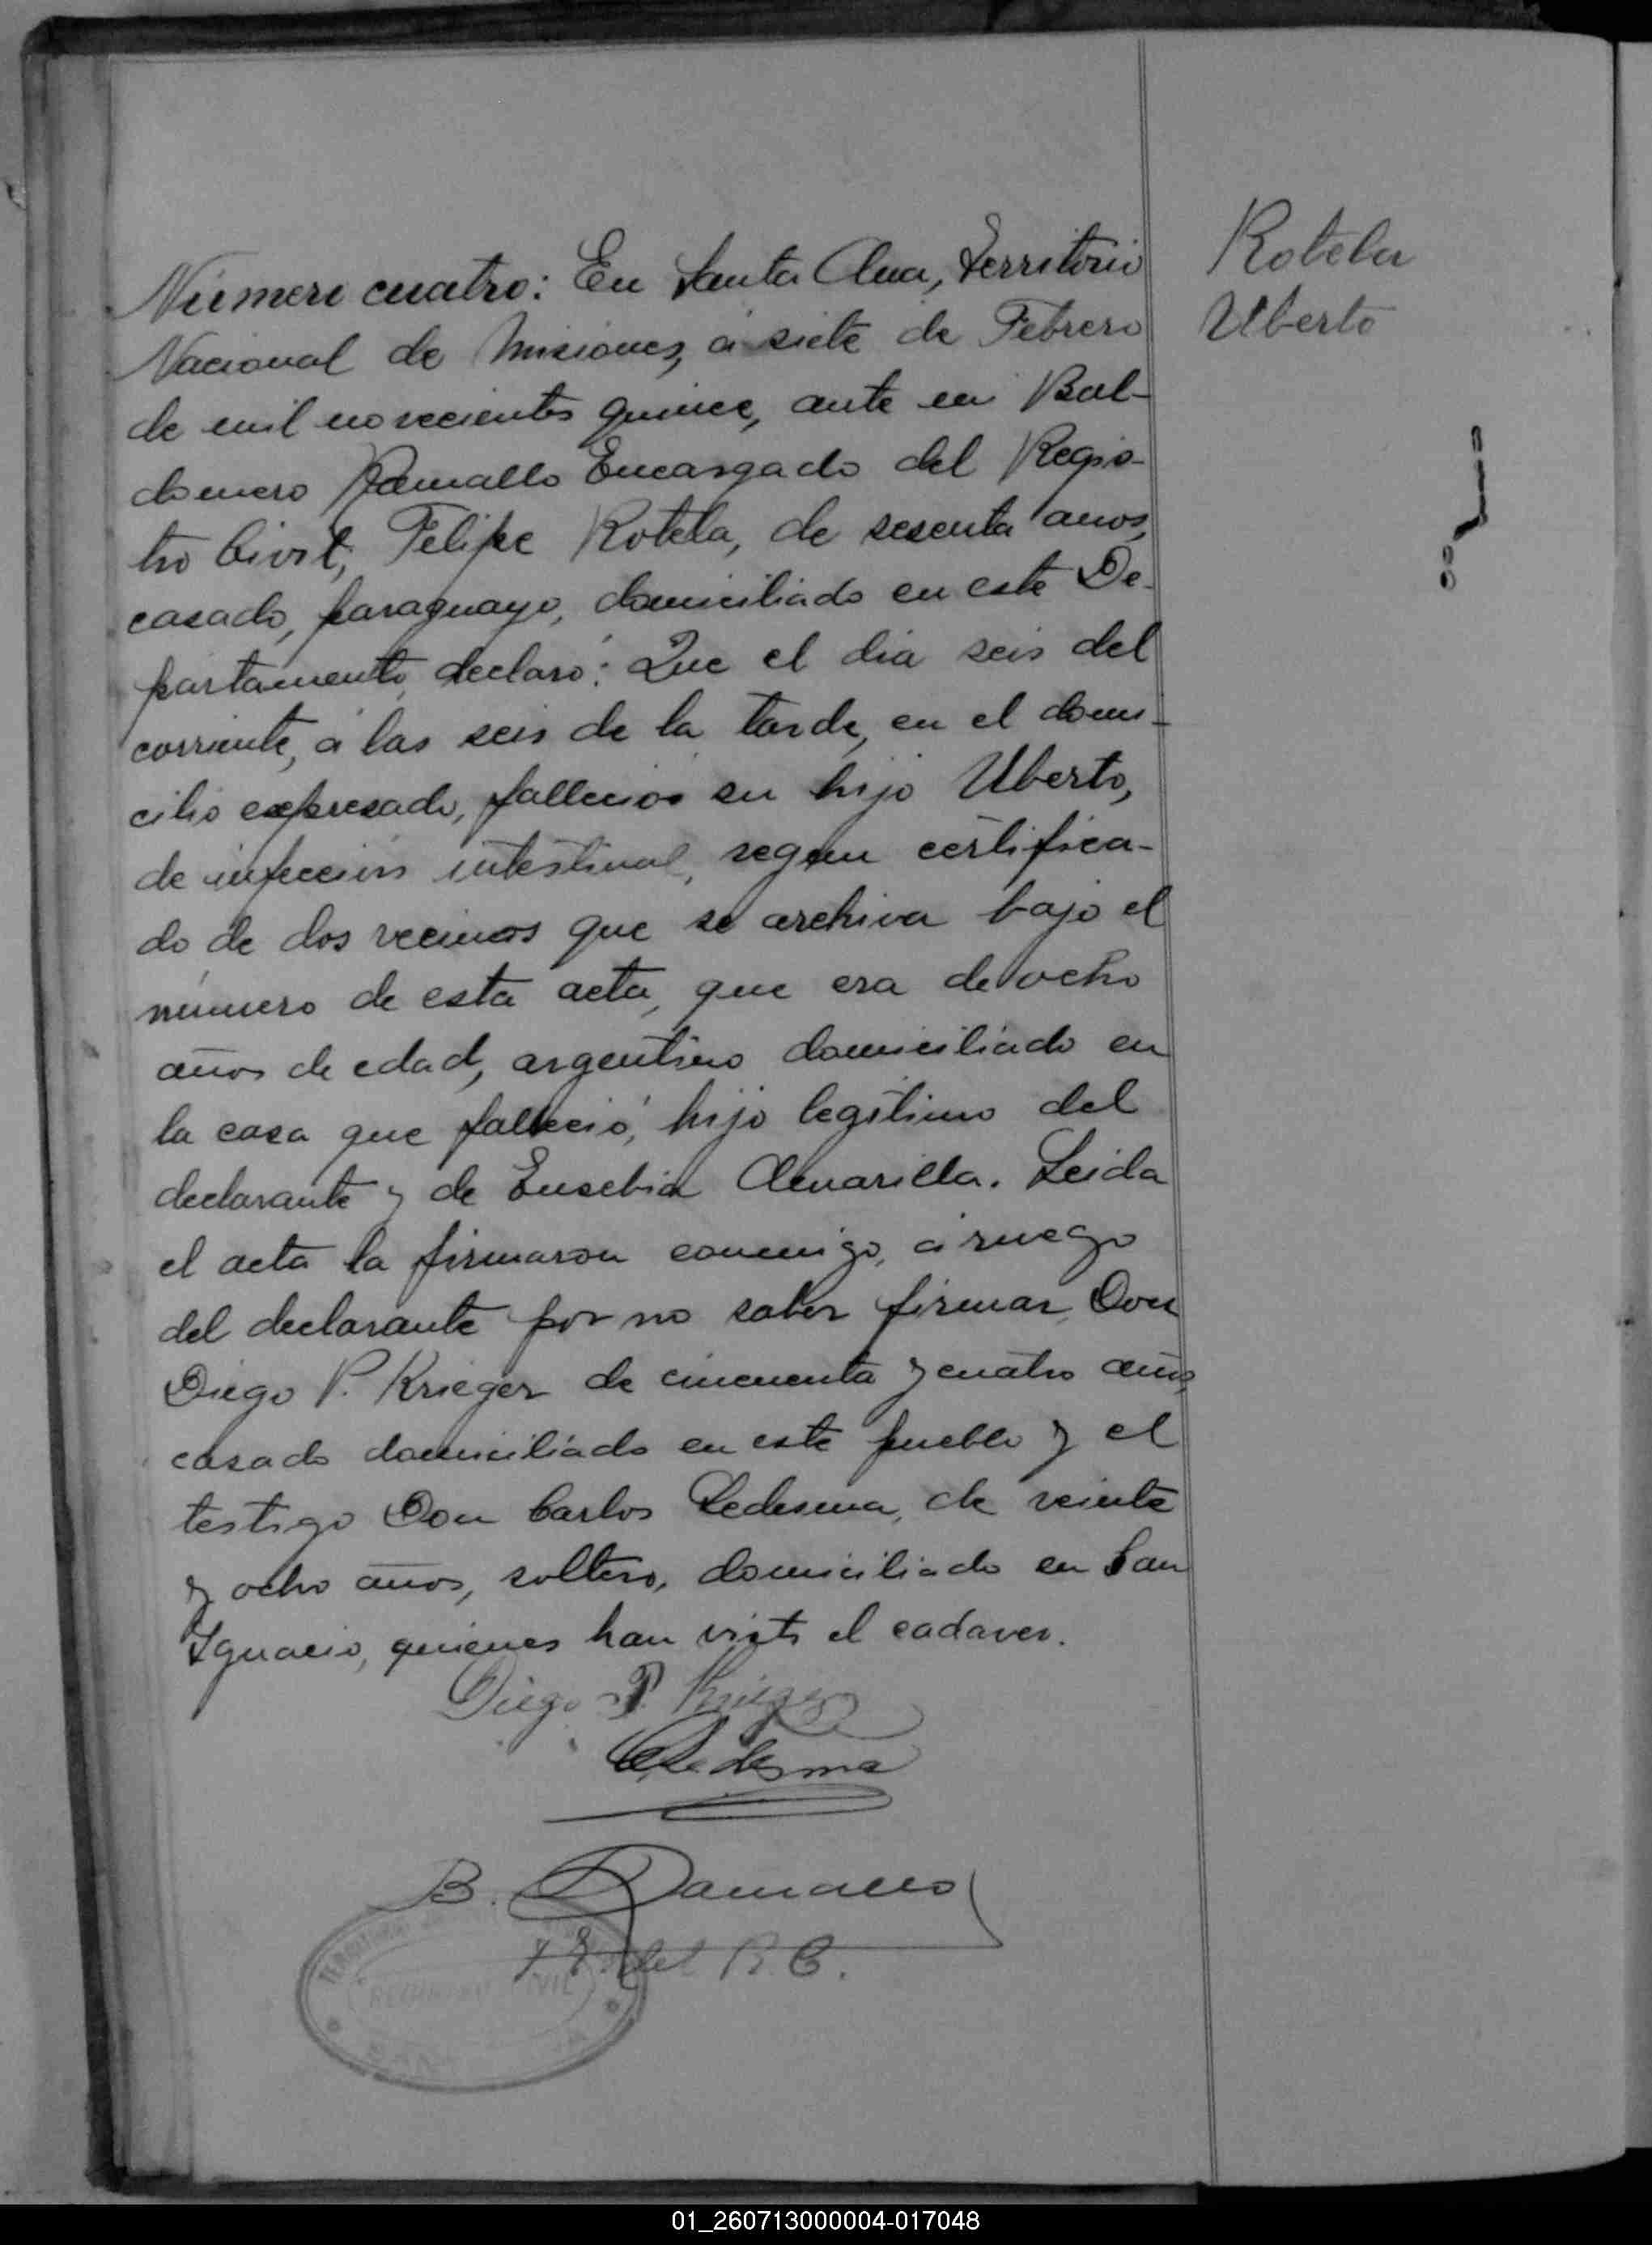 Rotela
Uberto
Número cuatro: En Santa Ana, Territorio
Nacional de Misiones, á siete de Febrero
de mil novecientos quince, ante mi Bal-
domero Ramallo Encargado del Regis-
tro Civil, Felipe Rotela, de sesenta años,
casado, paraguayo, domiciliado en este De-
partamento, declaró: Que el dia seis del
corriente, á las seis de la tarde, en el domi-
cilio expresado, falleció su hijo Uberto,
de infección intestinal, segun certifica-
do de dos vecinos que se archiva bajo el
número de esta acta, que era de ocho
años de edad, argentino domiciliado en
la casa que falleció, hijo legítimo del
declarante y de Eusebia Amarilla. Leida
el acta la firmaron conmigo, á ruego
del declarante por no saber firmar Don
Diego P. Krieger de cincuenta y cuatro años,
casado domiciliado en este pueblo y el
testigo Don Carlos Ledesma, de veinte
y ocho años, soltero, domiciliado en San
Ignacio, quienes han visto el cadaver.
Diego P. Krieger
C Ledesma
B. Ramallo
del R. C.
REGISTRO CIVIL
01_260713000004-017048